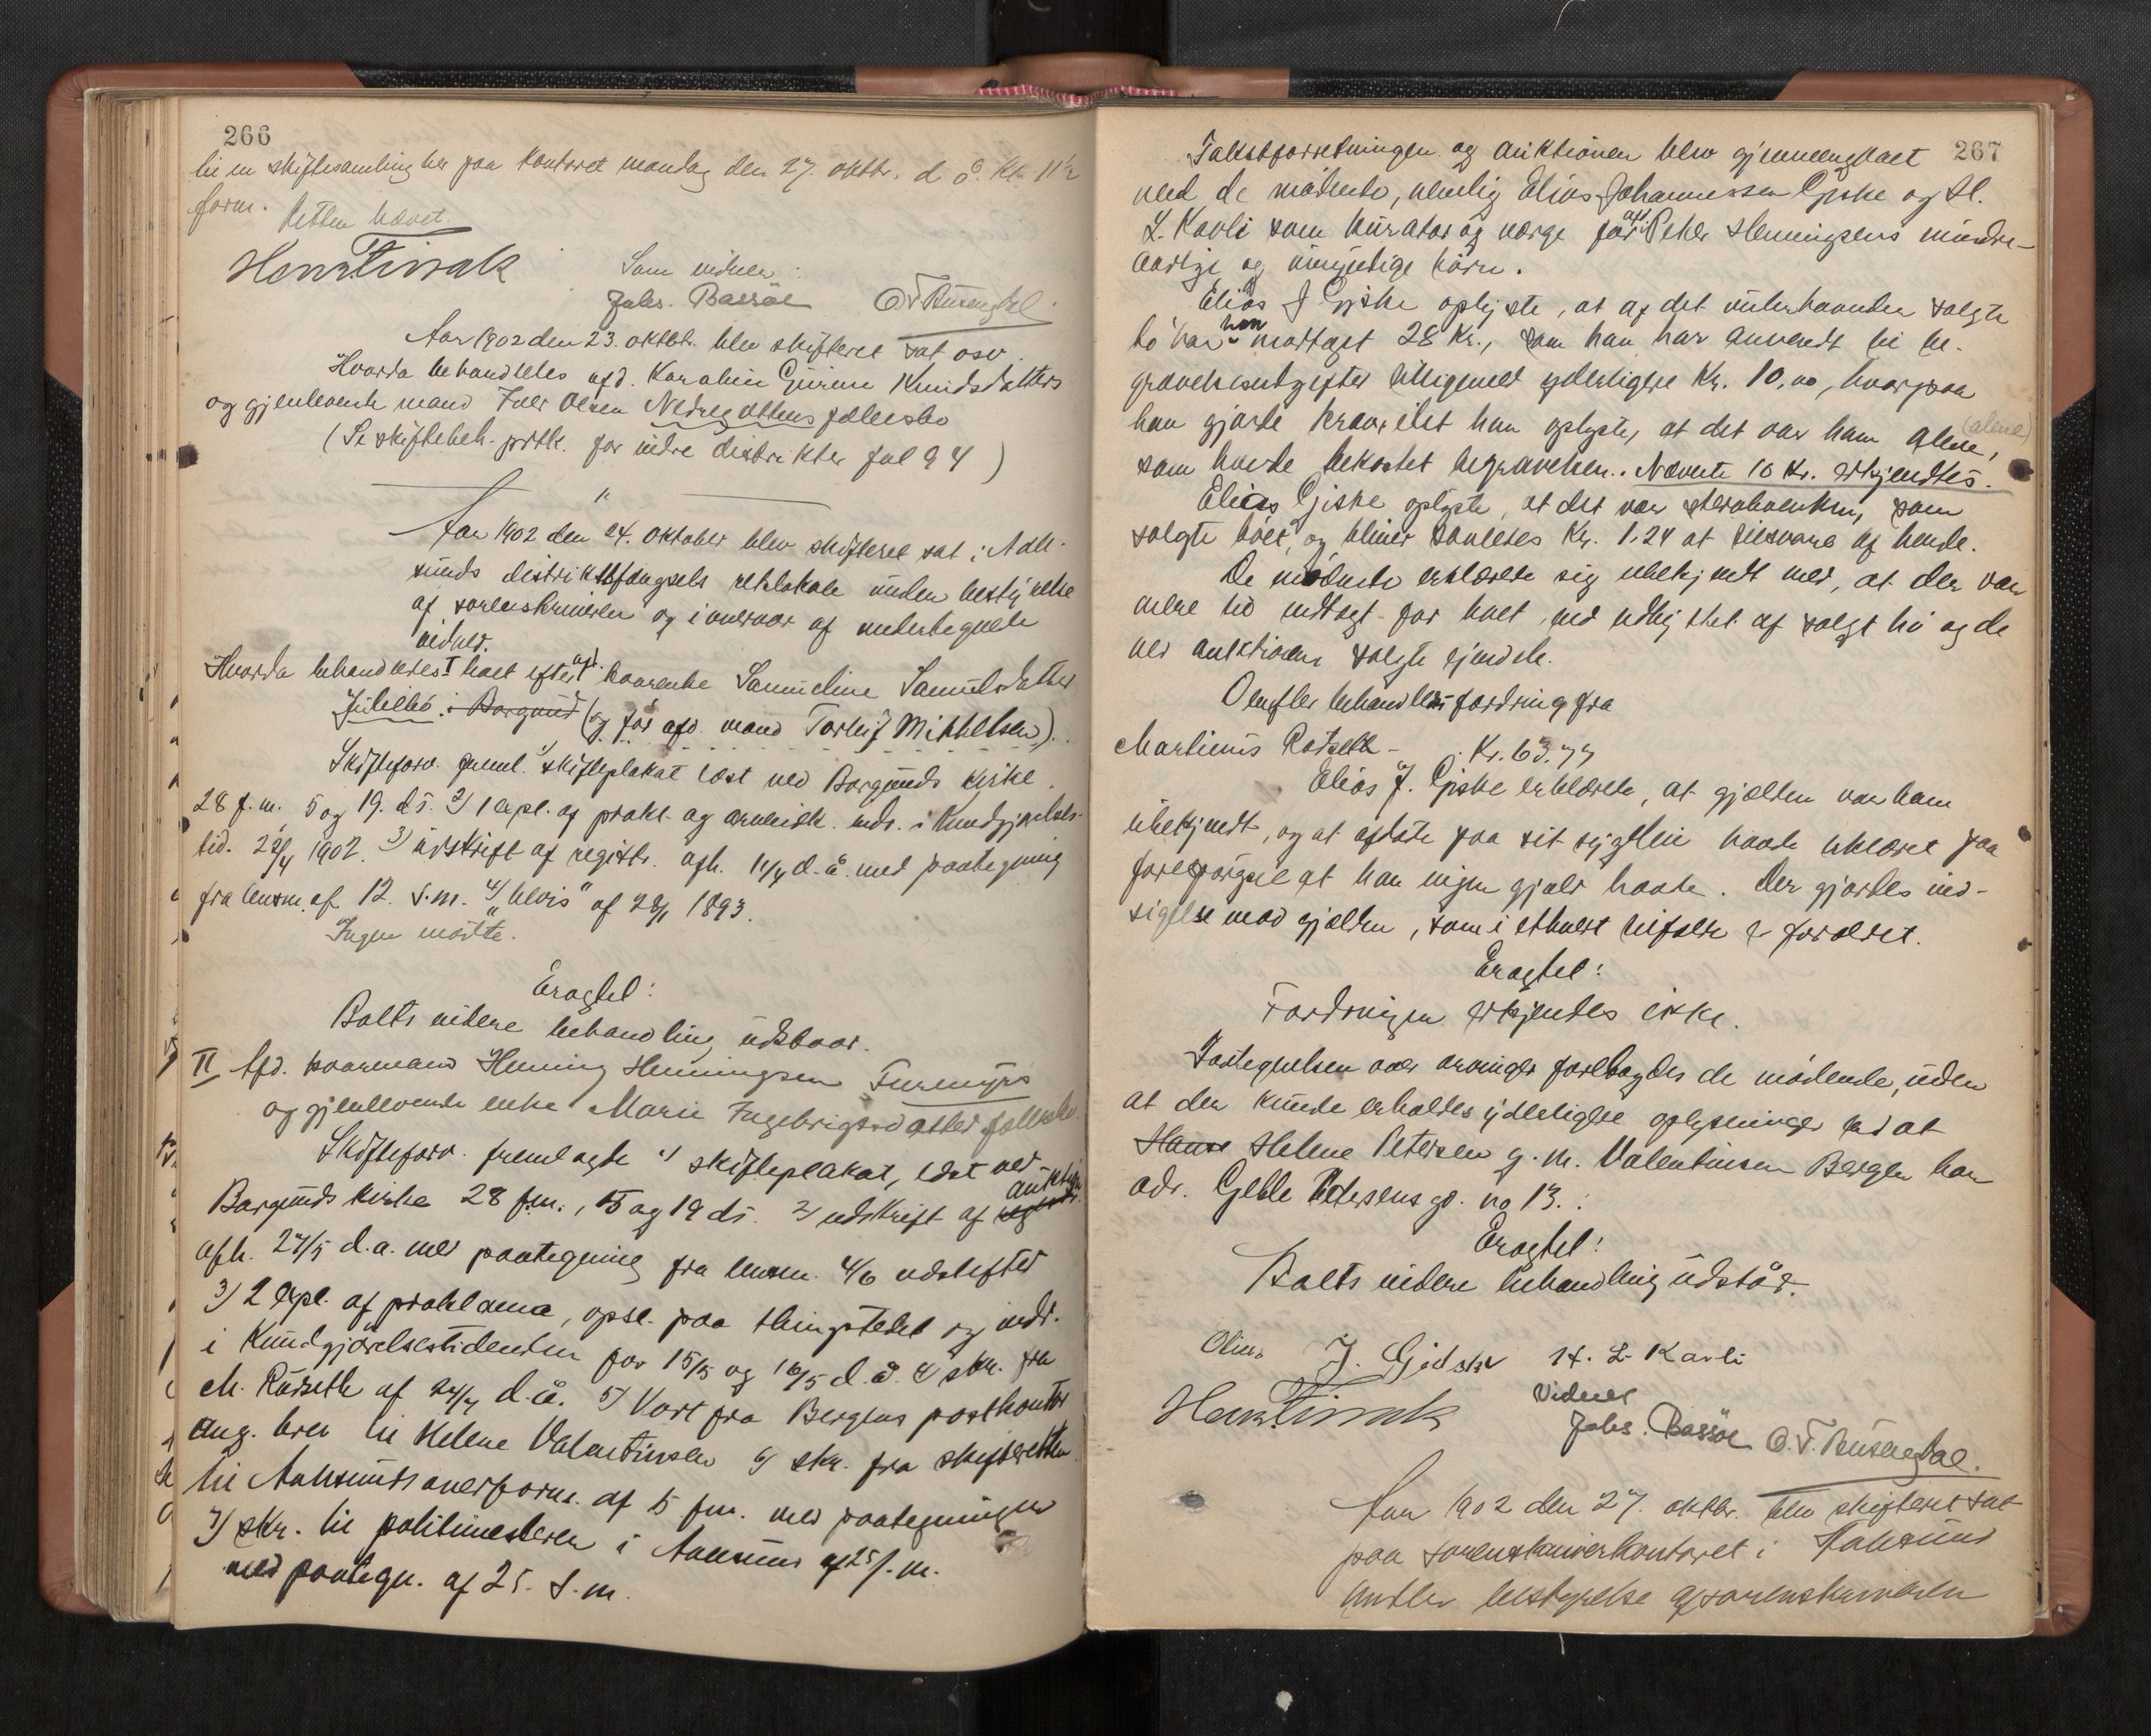 266
til en skiftesamling her paa kontoret mandag den 27. oktbr. d å. kl. 11½
form. Retten hævet.
Henr. Finsak
Som vidner:
Johs. Bassöe O. F. Busengdal.
Aar 1902 den 23. oktbr. blev skifteret sat osv.
Hvorda behandledes afd. Karoline Gjurine Knudsdatters
og gjenlevende mand Iver Olsen Nedregottens fællesbo
(Se skiftebeh. protk. for indre distrikter fol 94)
Aar 1902 den 24. oktober blev skifteret sat i Aale-
sunds distriktsfængsels retslokale under bestyrelse
af sorenskriveren og i overvær af undertegnede
vidner.
Hvorda behandledes I boet efter afd. kaarenke Samueline Samuelsdatter
Julebö i Borgund (og før afd. mand Torleif Mikkelsen).
Skifteforv. freml. 1) skifteplakat læst ved Borgunds kirke
28 f.m. 5 og 19. ds. 2) 1 expl. af prokl. og arveindk. indr. i Kundgjørelses-
tid. 22/4 1902. 3) udskrift af registr. afh. 11/4 d. å. med paategning
fra lensm. af 12. s.m. 4) "bevis" af 28/1 1893.
Ingen mødte.
Eragtet:
Boets videre behandling udstaar.
II Afd. kaarmand Henning Henningsen Furmyrs
og gjenlevende enke Marie Ingebrigtsdatters fællesbo
Skifteforv. fremlagde 1) skifteplakat, læst ved
Borgunds kirke 28 f.m., 5 og 19 ds. 2) udskrift af auktion
afh. 27/5 d.a. med paategning fra lensm. 4/6 udstedtes
3) 2 expl. af proklama, opsl. paa thingstedet og indr.
i Kundgjørelsestidenden for 15/5 og 16/5 d. å. 4) skr. fra
M. Rødseth af 24/4 d. å. 5) Vort fra Bergens postkontor
ang. brev til Helene Valentinsen 6) skr. fra skifteretten
til Aalesunds overform. af 5 f.m. med paategninger
7) skr. til politimesteren i Aalesund af 25 f.m.
med paategn. af 25. s.m.
267
Takstforretningen og auktionen blev gjennemgaaet
med de mødende, nemlig Elias Johannessen Gjske og H.
L. Kavli som kurator og værge for afd. Peter Henningsens mindre-
aarige og umyndige børn.
Elias J Gjske oplyste, at af det underhaanden solgte
bø har han modtaget 28 Kr., som han har anvendt til be-
gravelsesudgifter tilligemed yderligere Kr. 10,00, hvorpaa
han gjorde krav idet han oplyste, at det var ham alene, (alene)
som havde bekostet begravelsen. Nævnte 10 Kr. erkjendtes.
Elias Giske oplyste, at det var sterbboenken, som
solgte höet, og bliver saaledes Kr. 1.24 at tilsvare af hende.
De mødende erklærede sig ubekjendt med, at der var
mere til indtægt for boet, end udbyttet af solgt hø og de
ved auktionen solgte eiendele.
Derefter behandledes fordring fra
Martinus Rødseth - Kr. 63.77
Elias J. Gjske erklærede, at gjælden var ham
ubekjendt, og at afdøde paa sit sygeleie havde erklæret paa
forespørgsel at han ingen gjæld havde. Der gjordes ind-
sigelse mod gjælden, som i ethvert tilfælde er forældet.
Eragtet:
Fordringen erkjendes ikke.
Fortegnelsen over arvinger forelagdes de mødende, uden
at der kunde erholdes yderligere oplysninger end at
Hans Helene Petersen g. m. Valentinsen Bergen har
adr. Gjelle Petersens gd. no 13.
Eragtet:
Boets videre behandling udstår.
Elias J. Gjdske H. L. Kavli
Henr. Finsak
Vidner
Johs. Bassöe O. F. Busengdal.
Aar 1902 den 27. oktbr. blev skifteret sat
paa sorenskriverkontoret i Aalesund
under bestyrelse af sorenskriveren